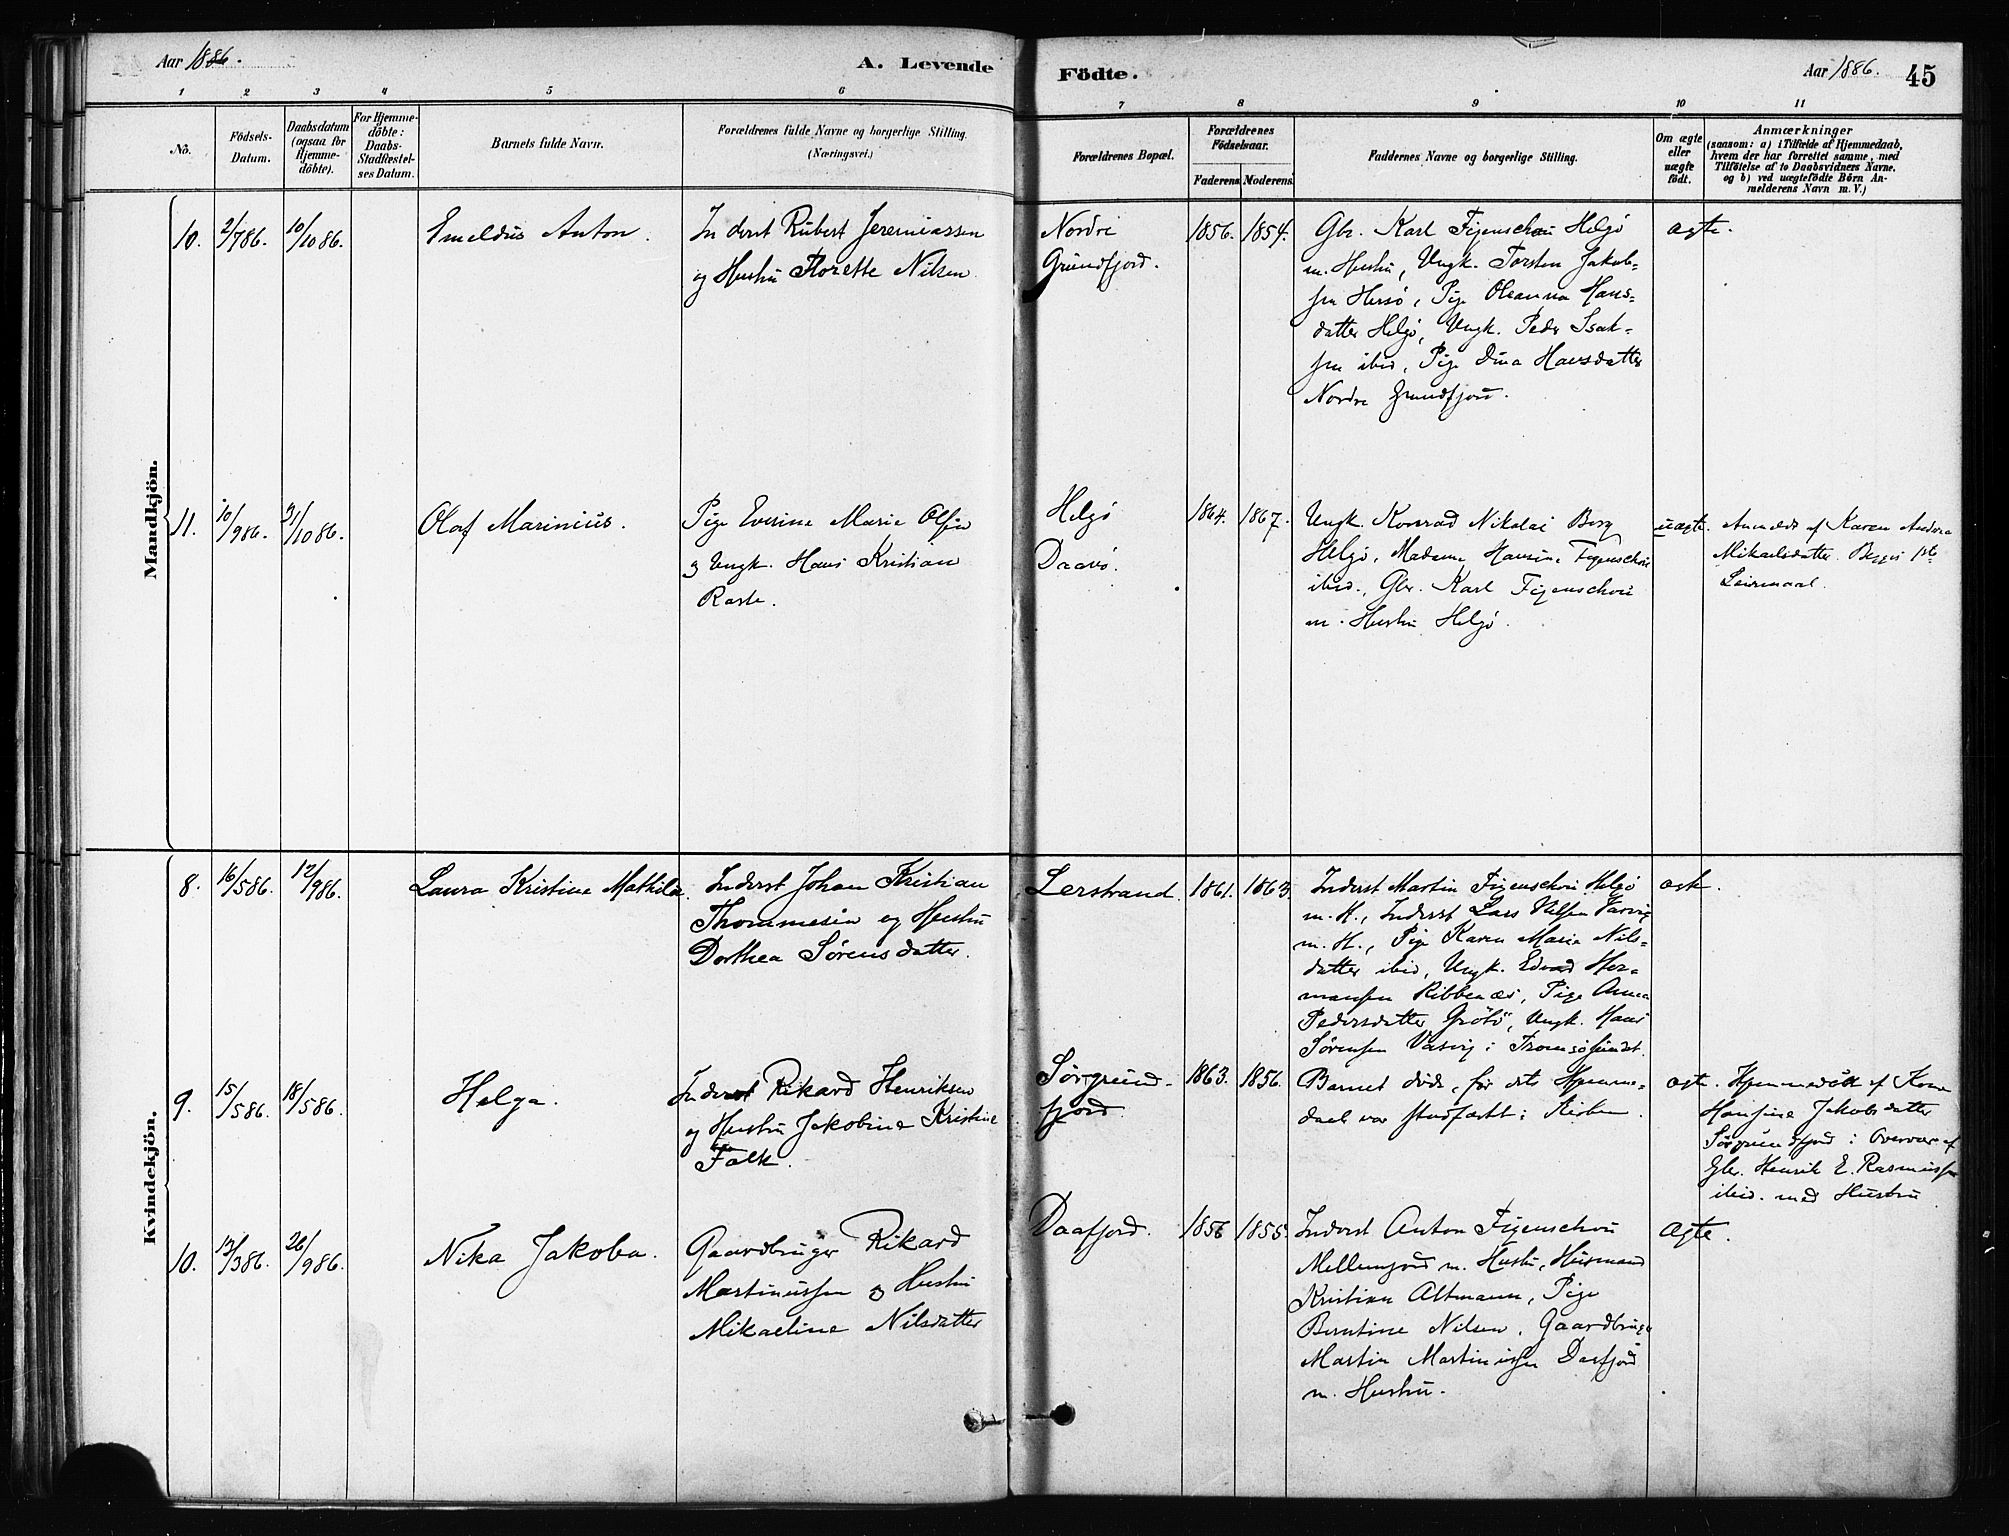 Aar 1886.
A. Levende
Födte.
Aar 1886.
45
1 2 3 4 5 6 7 8 9 10 11
No.
Födsels-
Datum.
Daabsdatum
(ogsaa for
Hjemme-
döbte).
For Hjemme-
döbte:
Daabs-
Stadfæstel-
ses Datum.
Barnets fulde Navn.
Forældrenes fulde Navne og borgerlige Stilling
(Næringsvei.)
Forældrenes Bopæl.
Forældrenes
Födselsaar.
Faderens
Moderens
Faddernes Navne og borgerlige Stilling.
Om ægte
eller
uægte
födt.
Anmærkninger
(saasom: a) i Tilfælde af Hjemmedaab,
hvem der har forrettet samme, med
Tilföielse af to Daabsvidners Navne,
og b) ved uægtefödte Börn An-
melderens Navn m. V.)
Mandkjön.
10.
2/786.
10/1086.
Emeldus Anton.
Inderst Rubert Jeremiassen
og Hustru Florette Nilsen
Nordre
Grundfjord.
1856.
1854.
Gbr. Karl Figenschou Helgø
m. Hustru, Ungk. Torsten Jakob-
sen Hersø, Pige Oleanna Hans-
datter Helgø, Ungk. Peder Isak-
sen ibid, Pige Dina Hansdatter
Nordre Grundfjord.
ægte.
11.
10/986.
31/1086.
Olaf Marinius.
Pige Everine Marie
og Ungk. Hans Kristian
Helgø
Daavø.
1864.
1867.
Ungk. Konrad Nikolai Berg
Helgø, Madam Hansine Figenschou
ibid., Gbr. Karl Figenschou
m. Hustru Helgø.
uægte.
Anmeldt af Karen Andrea
Mikalsdatter
Leirmaal.
Kvindekjön.
8.
16/586.
12/986.
Laura Kristine Mathilda.
Inderst Johan Kristian
Thommesen og Hustru
Dorthea Sørensdatter.
Lerstrand.
1861.
1863.
Inderst Martin Figenschou Helgø
m. H., Inderst Lars Nilsen
m. H., Pige Karen Marie Nils-
datter ibid, Ungk. Edvard Her-
mansen Ribbenæs, Pige Anna
Pedersdatter Grøtø, Ungk. Hans
Sørensen Vasvig i Tromsøsundet.
ægte.
9.
15/586.
18/586.
Helga.
Inderst Rikard Henriksen
og Hustru Jakobine Kristine
Falk.
Sørgrund-
fjord.
1863.
1856.
Barnet døde, før dets Hjemme-
daab var stadfæstet i Kirken.
ægte.
Hjemmedøbt af Kone
Hansine Jakobsdatter
Sørgrundfjord i Overvær af
Gbr. Henrik E. Rasmussen
ibid. med Hustru
10.
13/386.
26/986.
Nika Jakoba.
Gaardbruger Rikard
Martinussen og Hustru
Mikaeline Nilsdatter
Daafjord.
1856
1855.
Inderst Anton Figenschou
Mellemjord m. Hustru, Husmand
Kristian Altmann, Pige
Berntine Nilsen, Gaardbruger
Martin Martinussen Daafjord
m. Hustru.
Ægte.